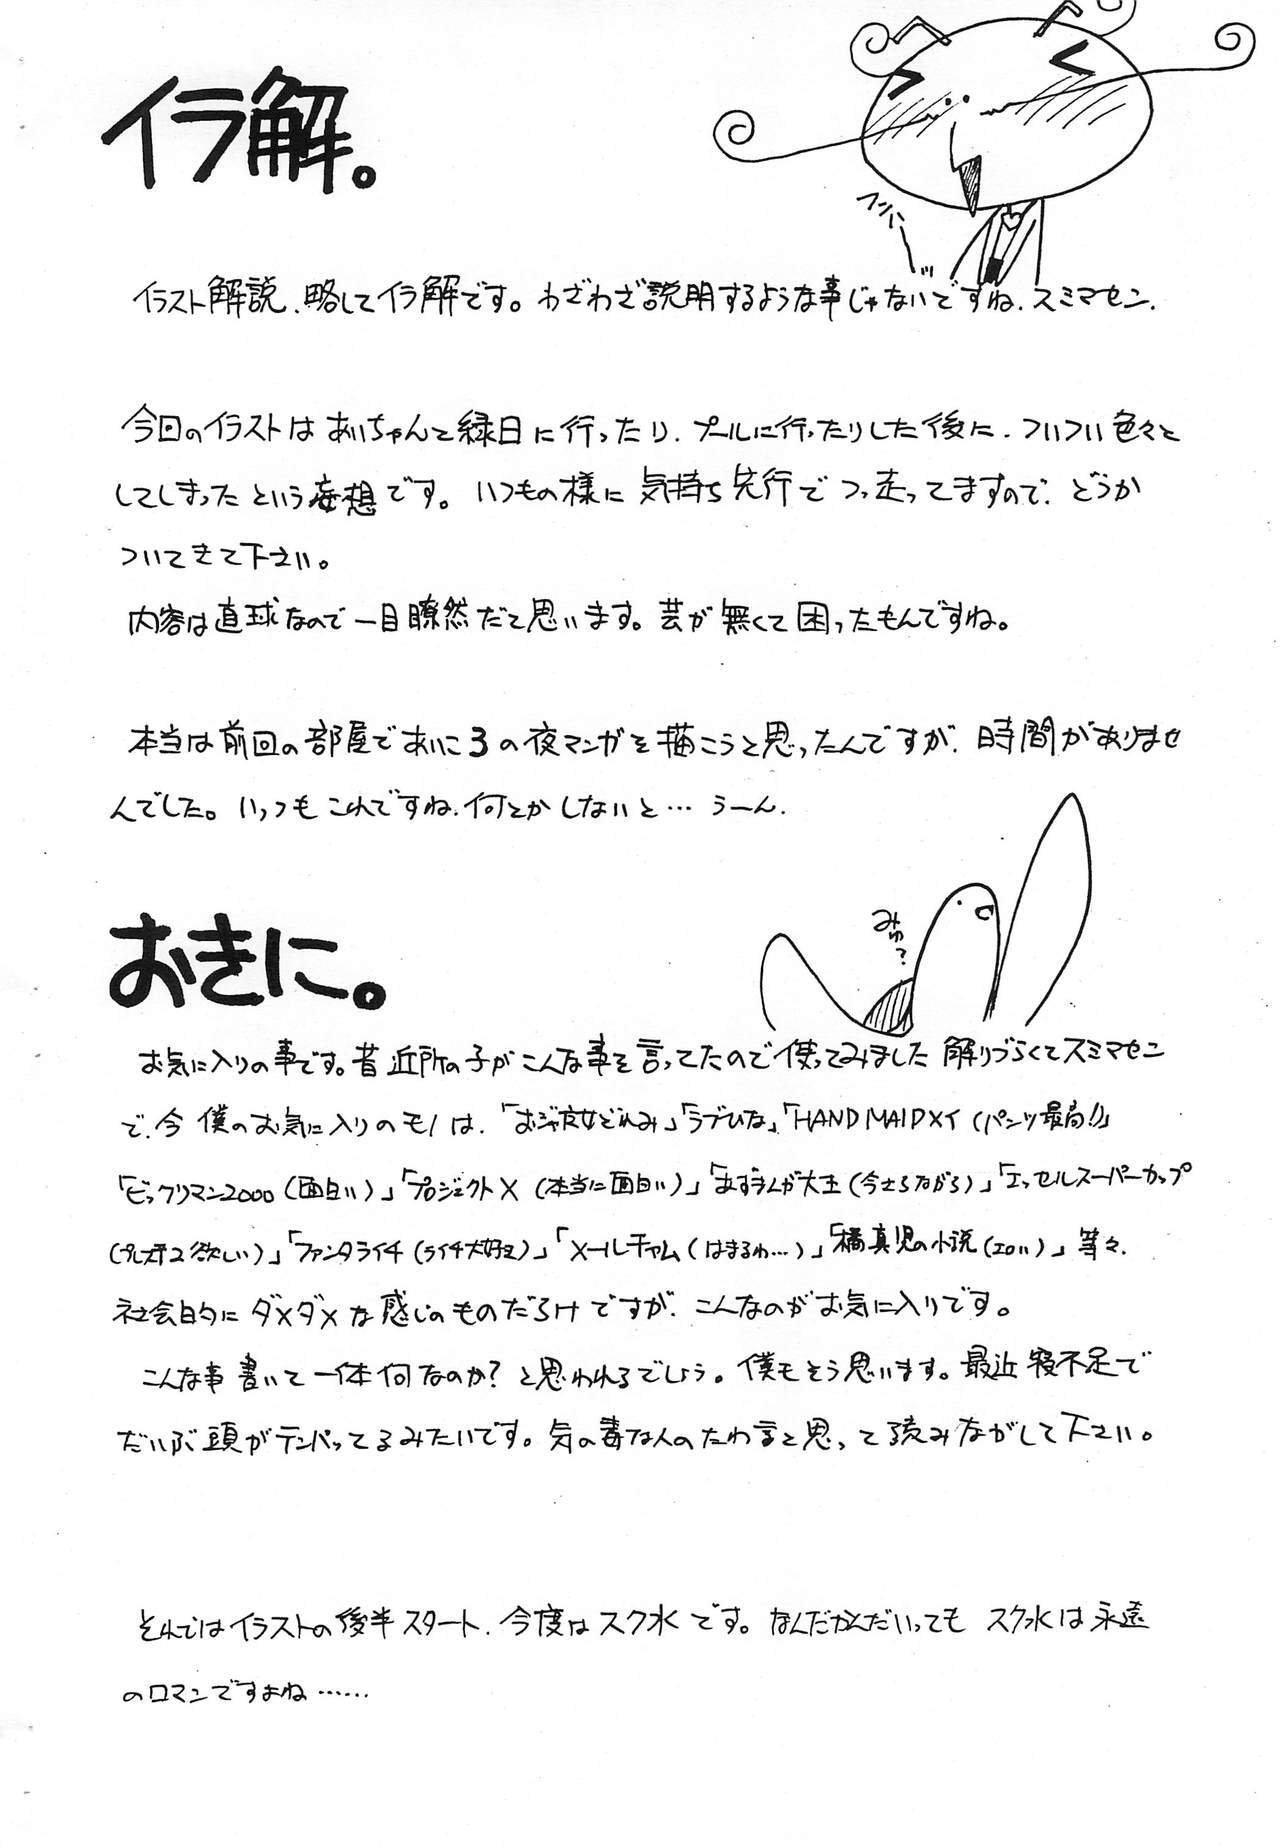 イラ解。
フンハー
イラスト解説、略してイラ解です。わざわざ説明するような事じゃないですね、スミマセン.
今回のイラストはあいちゃんと縁日に行ったり、プールに行ったりした後に、ついつい色々と
してしまったという妄想です。いつもの様に気持ち先行でつっ走ってますので、どうか
ついてきて下さい。
内容は直球なので一目瞭然だと思います。芸が無くて困ったもんですね。
本当は前回の部屋であいこ3の夜マンガを描こうと思ったんですが、時間がありませ
んでした。いっつもこれですね、何とかしないと…うーん.
みゅ?
おきに。
お気に入りの事です。昔近所の子がこんな事を言ってたので使ってみました 解りづらくてスミマセン
で、今僕のお気に入りのモノは、「おジャ魔女どれみ」「ラブひな」「HAND MAIDメイ(パンツ最高!!)」
「ビックリマン2000(面白い)」「プロジェクトX(本当に面白い)」「あずまんが大王(今さらながら)」「エッセルスーパーカップ
(プレステ2欲しい)」「ファンタライチ(ライチ大好き)」「メールチャム(はまるわ…)」「橘真児の小説(エロい)」等々.
社会的にダメダメな感じのものだらけですが、こんなのがお気に入りです。
こんな事書いて一体何なのか?と思われるでしょう。僕もそう思います。最近寝不足で
だいぶ頭がテンパってるみたいです。気の毒な人のたわ言と思って読みながして下さい。
それではイラストの後半スタート、今度はスク水です。なんだかんだいってもスク水は永遠
のロマンですよね……